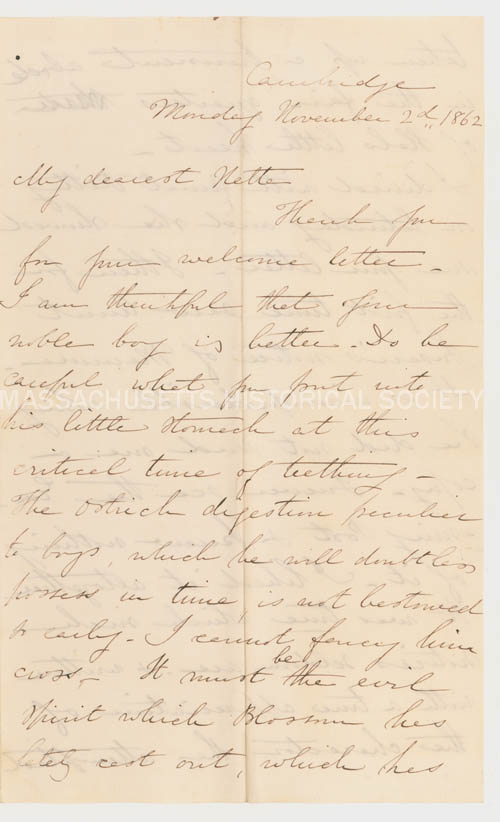 Cambridge
Monday November 2d. 1862
My dearest Nettie
Thank you
for your welcome letter –
I am thankful that your
noble boy is better – Do be
careful what you put into
MASSACHUSETTS HISTORICAL SOCIETY
his little stomach at this
critical time of teething –
The Ostrich digestion peculiar
to boys, which he will doubtless
possess in time, is not bestowed
so early – I cannot fancy him
cross – It must be the evil
spirit which Blossom has
lately cast out, which has